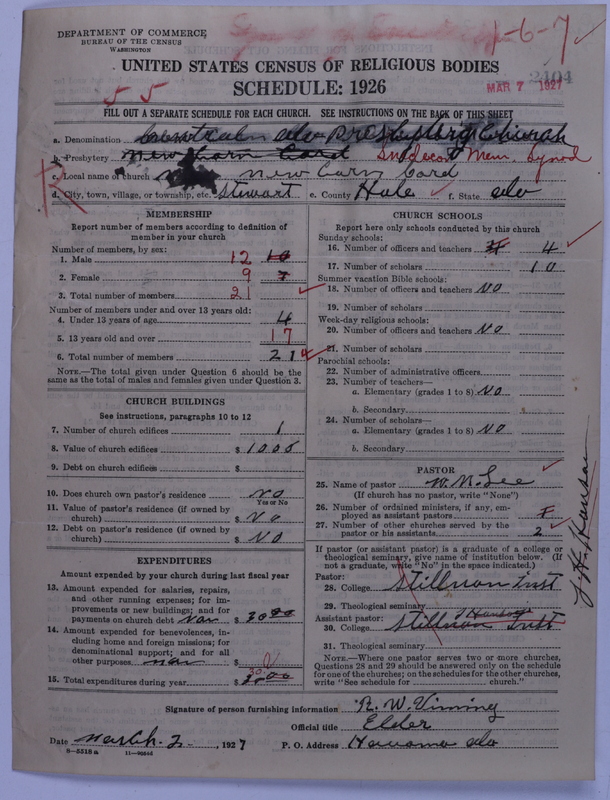 DEPARTMENT OF COMMERCE
BUREAU OF THE CENSUS
WASHINGTON
1-6-7
UNITED STATES CENSUS OF RELIGIOUS BODIES
SCHEDULE: 1926
MAR 7 1927
2404
5 5
FILL OUT A SEPARATE SCHEDULE FOR EACH CHURCH. SEE INSTRUCTIONS ON THE BACK OF THIS SHEET
a. Denomination Presbyterian Church
b. Presbytery New Carn Card Mem. Synod
c. Local name of church New Carn Card
d. City, town, village, or township, etc. Stewart e. County Hale f. State ala
R
MEMBERSHIP
Report number of members according to definition of member in your church
Number of members, by sex:
1. Male 12 10
2. Female 9 7
3. Total number of members 21
Number of members under and over 13 years old:
4. Under 13 years of age 4
5. 13 years old and over 17
6. Total number of members 21
NOTE.—The total given under Question 6 should be the same as the total of males and females given under Question 3.
CHURCH BUILDINGS
See instructions, paragraphs 10 to 12
7. Number of church edifices 1
8. Value of church edifices $ 1000
9. Debt on church edifices $
10. Does church own pastor's residence No
Yes or No
11. Value of pastor's residence (if owned by church) $ No
12. Debt on pastor's residence (if owned by church) $ No
EXPENDITURES
Amount expended by your church during last fiscal year
13. Amount expended for salaries, repairs, and other running expenses; for improvements or new buildings; and for payments on church debt $ 30.00
14. Amount expended for benevolences, including home and foreign missions; for denominational support; and for all other purposes $
15. Total expenditures during year $ 30.00
CHURCH SCHOOLS
Report here only schools conducted by this church
Sunday schools:
16. Number of officers and teachers 4
17. Number of scholars 10
Summer vacation Bible schools:
18. Number of officers and teachers No
19. Number of scholars
Week-day religious schools:
20. Number of officers and teachers No
21. Number of scholars
Parochial schools:
22. Number of administrative officers
23. Number of teachers—
a. Elementary (grades 1 to 8) No
b. Secondary
24. Number of scholars—
a. Elementary (grades 1 to 8) No
b. Secondary
PASTOR
25. Name of pastor W. M. Lee
(If church has no pastor, write "None")
26. Number of ordained ministers, if any, employed as assistant pastors 1
27. Number of other churches served by the pastor or his assistants 2
If pastor (or assistant pastor) is a graduate of a college or theological seminary, give name of institution below. (If not a graduate, write "No" in the space indicated.)
Pastor:
28. College Stillman Inst
29. Theological seminary
Assistant pastor:
30. College Stillman Inst
31. Theological seminary
NOTE.—Where one pastor serves two or more churches, Questions 28 and 29 should be answered only on the schedule for one of the churches; on the schedules for the other churches, write "See schedule for church."
J. H. Hanson
Signature of person furnishing information R. W. Vining
Official title Elder
Date March 2, 1927 P. O. Address ala
8-5518a 11-90566